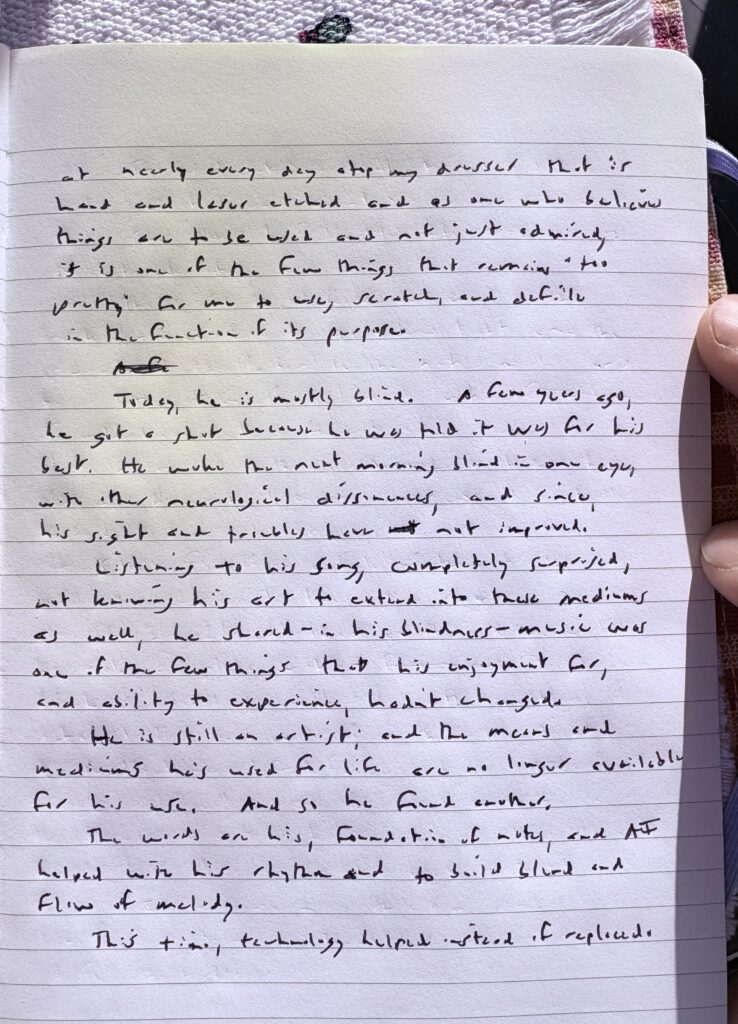 at nearly every day atop my dresser that is
hand and laser etched and as one who believes
things are to be used and not just admired,
it is one of the few things that remains "too
pretty" for me to use, scratch, and defile
in the function of its purpose.
Today, he is mostly blind. A few years ago,
he got a shot because he was told it was for his
best. He woke the next morning blind in one eye,
with other neurological dissonances, and since,
his sight and troubles have not improved.
Listening to his song, completely surprised,
not knowing his art to extend into these mediums
as well, he shared – in his blindness – music was
one of the few things that his enjoyment for,
and ability to experience, hadn't changed.
He is still an artist; and the means and
mediums he's used for life are no longer available
for his use. And so he found another.
The words are his, foundation of notes, and AI
helped with his rhythm and to build blend and
flow of melody.
This time, technology helped instead of replaced.